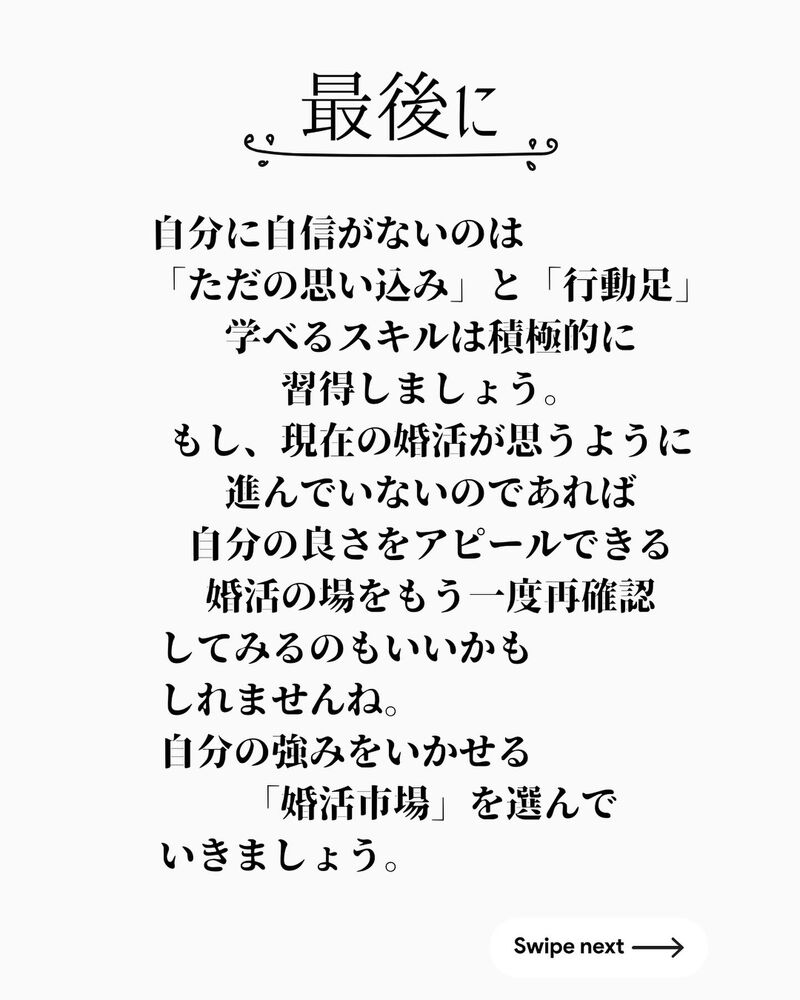 最後に
自分に自信がないのは
「ただの思い込み」と「行動足」
学べるスキルは積極的に
習得しましょう。
もし、現在の婚活が思うように
進んでいないのであれば
自分の良さをアピールできる
婚活の場をもう一度再確認
してみるのもいいかも
しれませんね。
自分の強みをいかせる
「婚活市場」を選んで
いきましょう。
Swipe next